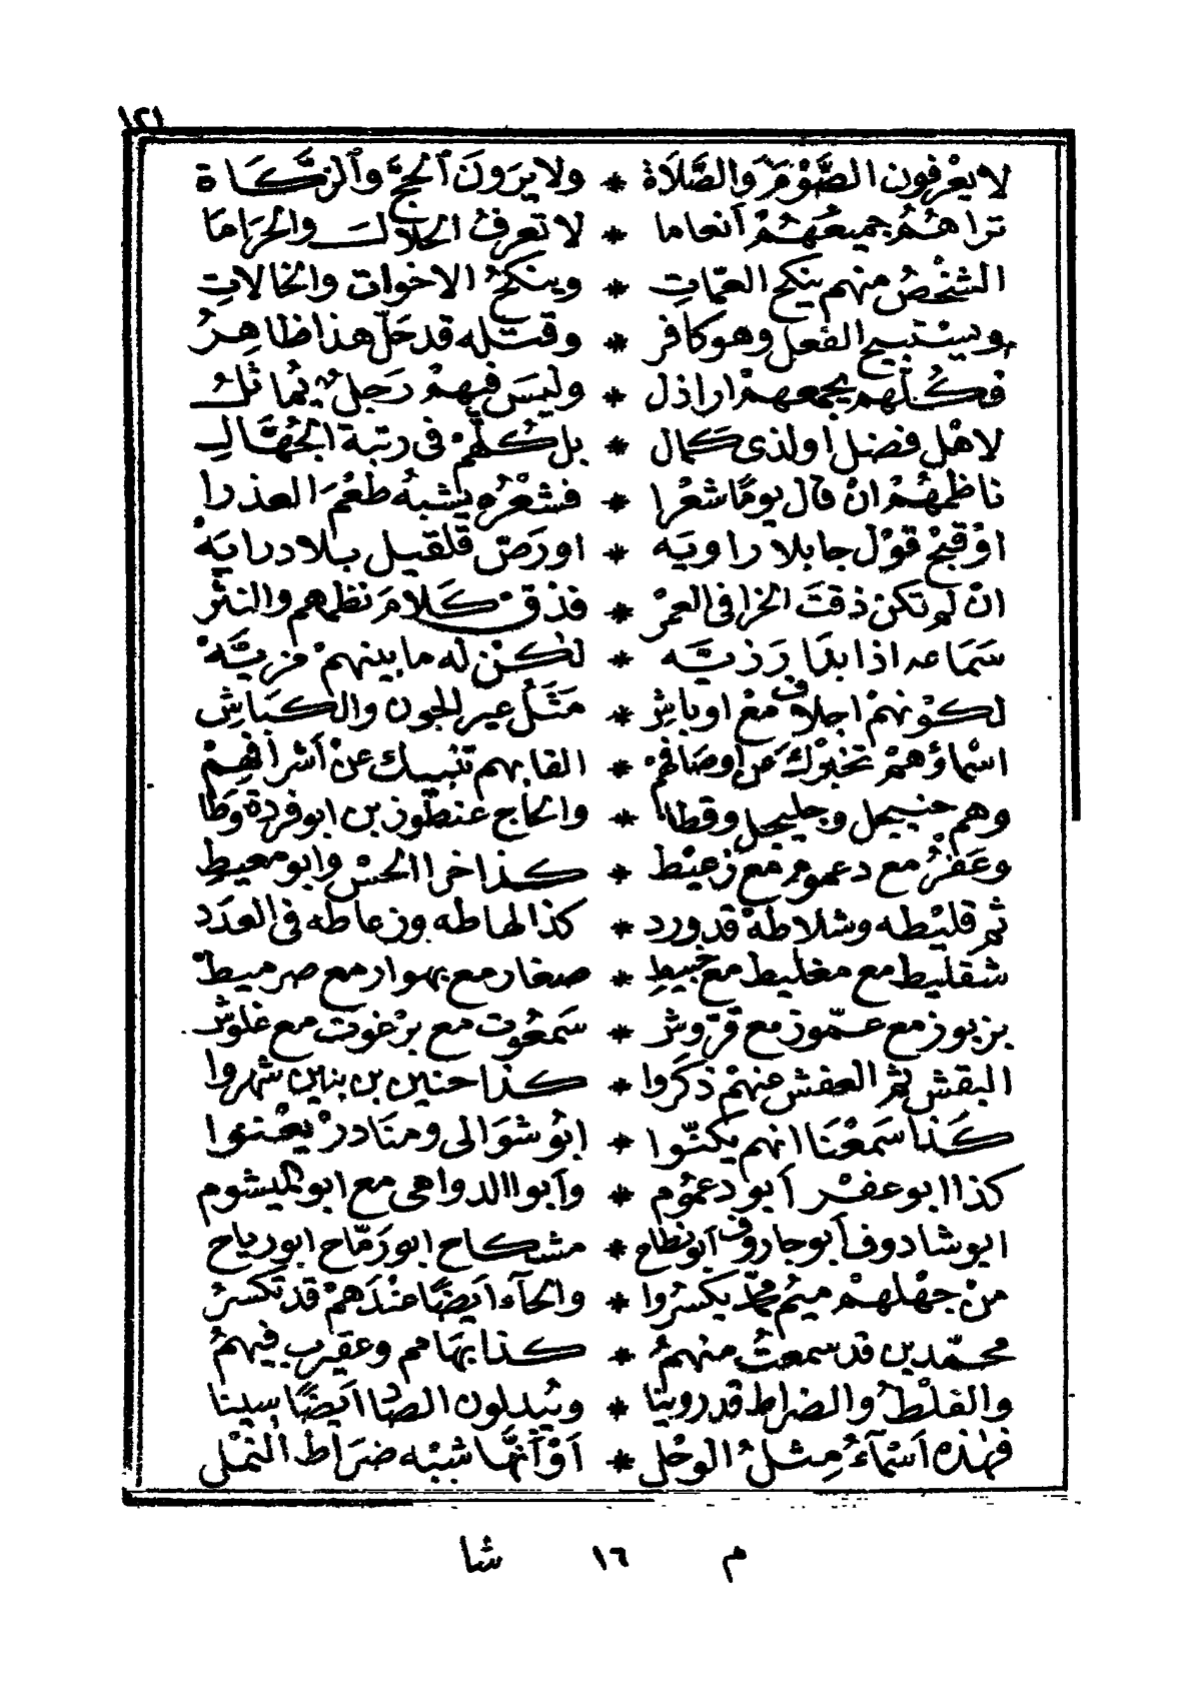 ١٢١
لا يعْرفون الصَّوْمَ والصَّلَاة * ولا يرَونَ ٱلحجَّ وٱلزَّكَاة
تراهُمُ جميعَهُمْ أنعاما * لا تعرفُ الحلالَ والحرَاما
الشخْصُ منهم ينكح العمّاتِ * وينكحُ الاخوات والخالاتِ
ويستبيح الفعل وهو كافر * وقتله قد حَلّ هذا ظاهِرُ
فكُلّهم يجمعهمْ اراذل * وليسَ فيهمْ رَجلٌ يماثلُ
لاهْل فضل او لذى كمال * بل كُلّهمْ فى رتبة الجُهّالِ
ناظمهُمْ انْ قال يومًا شعْرا * فشعْرُه يشبهُ طعْمَ العذرا
اوْ قبحْ قوْل جا بلا راويَه * او رَصّ قلقيل بلا درايَهْ
انْ لم تكن ذقتَ الخرا فى العمرْ * فذقْ كلامَ نظمهم والنثر
سَمَاعه اذا بدَا رَزيّه * لكنْ له ما بينهمْ مزيّهْ
لكوْنهمْ اجلاف معْ اوباشِ * مَثَلُ عير الجون والكبَاشِ
اسْماؤهمْ تخبرْكَ عن أوصَافهمْ * القابهم تنبيك عنْ أشرافهِمْ
وهم حنيجل وجليجل وقطا * والحاج عنطوز بن ابو فردة وَطَا
وعَفْرُ مع دعموم مع زعيْط * كذا خرا الحسْ وابو معيطِ
ثم قليْطه وشلاطهْ قد ورد * كذا لهاطه وزعاطه فى العدَد
شقليط مع مغليط مع خبيطِ * صغار مع بهوار مع صرميطْ
بزبوز مع عمّوز مع قرّوش * سَمعُوت مع برْغوت مع غلوش
البقش ثم العفش منهمْ ذكَروا * كذا حنين بن بنين شهروا
كذا سَمعْنَا انهم يكنّوا * ابُو شوَالى ومنَادرْ يعْنوا
كذا ابو عفْر أبو دعمُوم * وأبو الدواهى مع ابو كيشوم
ابو شادوف أبو جاروف أبو نطاح * مشكاح ابو رَمّاح ابو رياح
منْ جهْلهمْ ميمُ محمّد يكسرُوا * والحآء ايَضًا عنْدَهمْ قد تكسرُ
محمّدين قد سمعتُ منهمُ * كذا بهَا مم وعقرب فيهمُ
والغلطُ والضراط قد روينا * ويُبدلون الصاد ايَضًا سينا
فهٰذه اَسْمآءُ مِثلُ الوحْل * اَوْ اَنَّها شبْه ضرَاط النمْل
م ١٦ شا